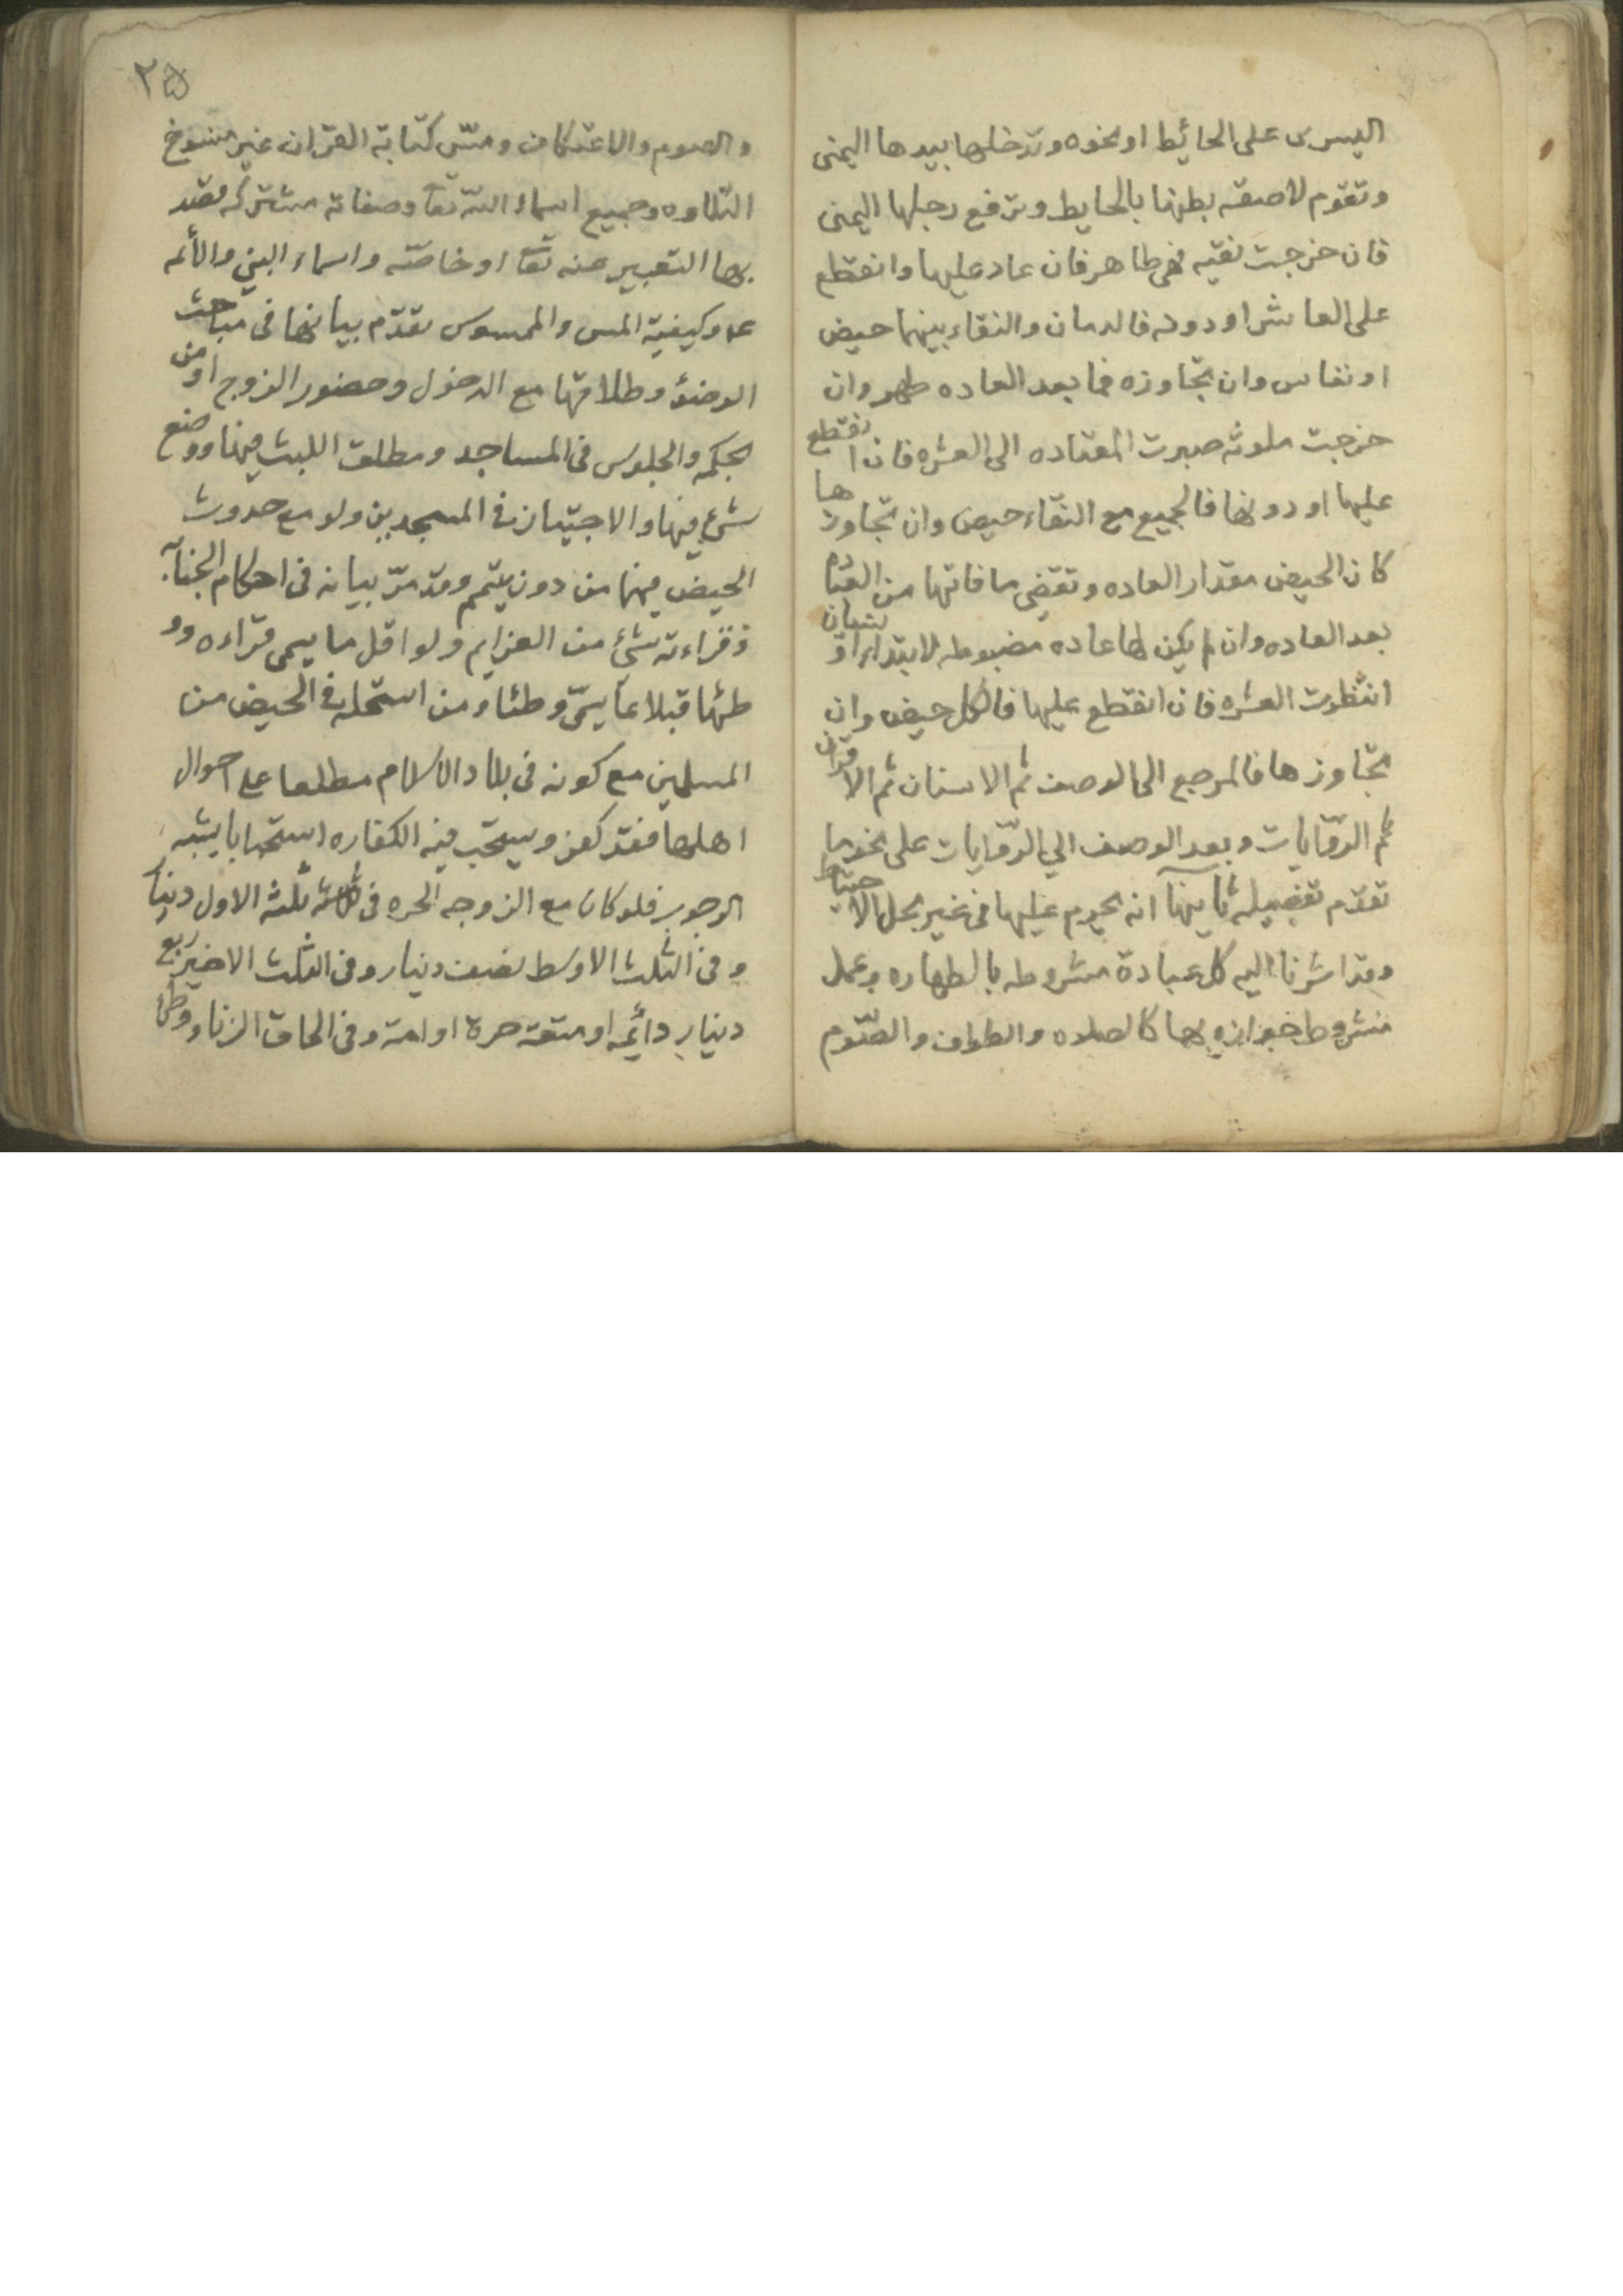 اليسرى على الحائيط او نحوه وتدخلها بيدها اليمنى
وتقوم لاصقه بطنها بالحايط وترفع رجلها اليمنى
فان خرجت نقيه فهي طاهر فان عاد عليها وانقطع
على العاشر او دونه فالدمان والنقاء بينهما حيض
او نفاس وان تجاوزه فما بعد العاده طهر وان
خرجت ملوثه صبرت المعتاده الى العشره فان انقطع
عليها او دونها فالجميع مع النقاء حيض وان تجاوزها
كان الحيض مقدار العاده وتقضى ما فاتها من
بعد العاده وان لم يكن لها عاده مضبوطه لابتداء او نسيان
انتظرت العشره فان انقطع عليها فالكل حيض وان
تجاوزها فالمرجع الى الوصف ثم الاسنان ثم الاقران
ثم الروايات وبعد الوصف الي الروايات على نحو ما
تقدم تفصيله ثانيها انه يحرم عليها في غير محل الاحتياط
وقد اشرنا اليه كل عبادة مشروطه بالطهاره وعمل
مشروط جوازه بها كالصلاه والطواف والصّوم
٢٥
والصوم والاعتكاف ومسّ كتابة القرآن غير منسوخ
التلاوه وجميع اسماء اللّه تعا وصفاته مشتركه يقصد
بها التعبير عنه تعا او خاصّه واسماء النبي والأئمه
ع وكيفية المس والممسوس تقدّم بيانها فى مباحث
الوضؤ وطلاقها مع الدخول وحضور الزوج او من
بحكمه والجلوس فى المساجد ومطلق اللبث فيها ووضع
شئ فيها والاجتياز فى المسجدين ولو مع حدوث
الحيض فيهما من دون تيمم وقد مرّ بيانه فى احكام الجنابه
وقراءته شئ من العزايم ولو اقل ما يسمى قراءه وو
طئها قبلا بما يسمّى وطئا ومن استحله فى الحيض من
المسلمين مع كونه فى بلاد الاسلام مطلعا على احوال
اهلها فقد كفر ويستحب فيه الكفاره استحبابا يشبه
الوجوب فلو كان مع الزوجه الحره فى ثلثه الاول دينار
وفى الثلث الاوسط نصف دينار وفى الثلث الاخير ربع
دينار دائمه او متعه حرة او امة وفى الحاق الزنا ووطئ